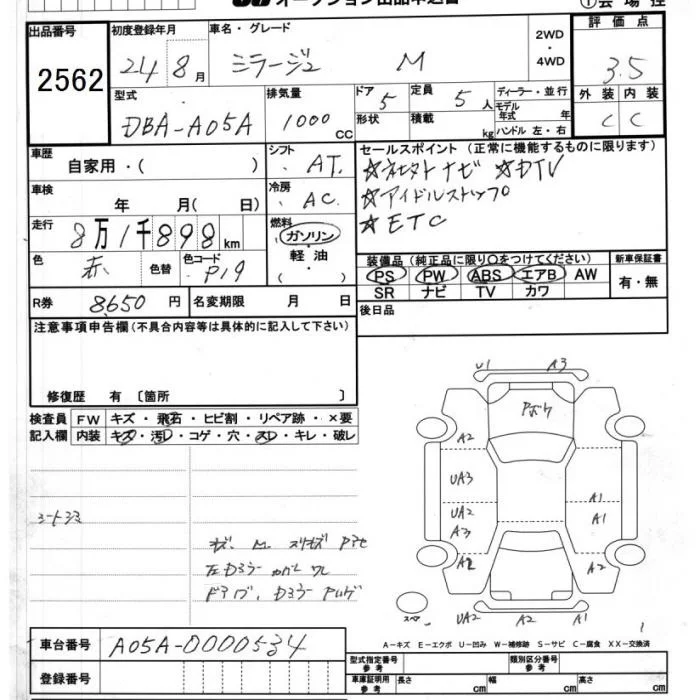 オークション出品申込書
出品番号 初度登録年月 車名・グレード 2WD ・ 4WD 評価点
2562 24 8月 ミラージュ M 3.5
型式 排気量 ドア 5 定員 5人 ディーラー・並行 外装 内装
DBA-A05A 1000 CC 形状 積載 kg モデル年式 年 C C
ハンドル 左・右
車歴 自家用・( ) シフト AT. セールスポイント(正常に機能するものに限ります)
☆DTV
車検 年 月( 日) 冷房 AC ☆アイドルストップ
走行 8万1千898km 燃料 ガソリン ☆ETC
軽油
・
( )
色 赤 色替 色コード P19 装備品(純正品に限り○をつけてください) 新車保証書
PS PW ABS エアB AW 有・無
SR ナビ TV カワ
R券 8650円 名変期限 月 日 後日品
注意事項申告欄(不具合内容等は具体的に記入して下さい)
修復歴 有 〔箇所 〕
検査員 FW キズ・飛石・ヒビ割・リペア跡・×要
記入欄 内装 キズ・汚れ・コゲ・穴・スレ・キレ・破レ
U1 A3
A2
UA3
UA2 A1
A3 A1
A2 A2
UA2 A2 A1
車台番号 A05A-0000534
A-キズ E-エクボ U-凹み W-補修跡 S-サビ C-腐食 XX-交換済
登録番号 型式指定番号 参考 類別区分番号 参考
車庫証明用 参考 長さ cm 幅 cm 高さ cm